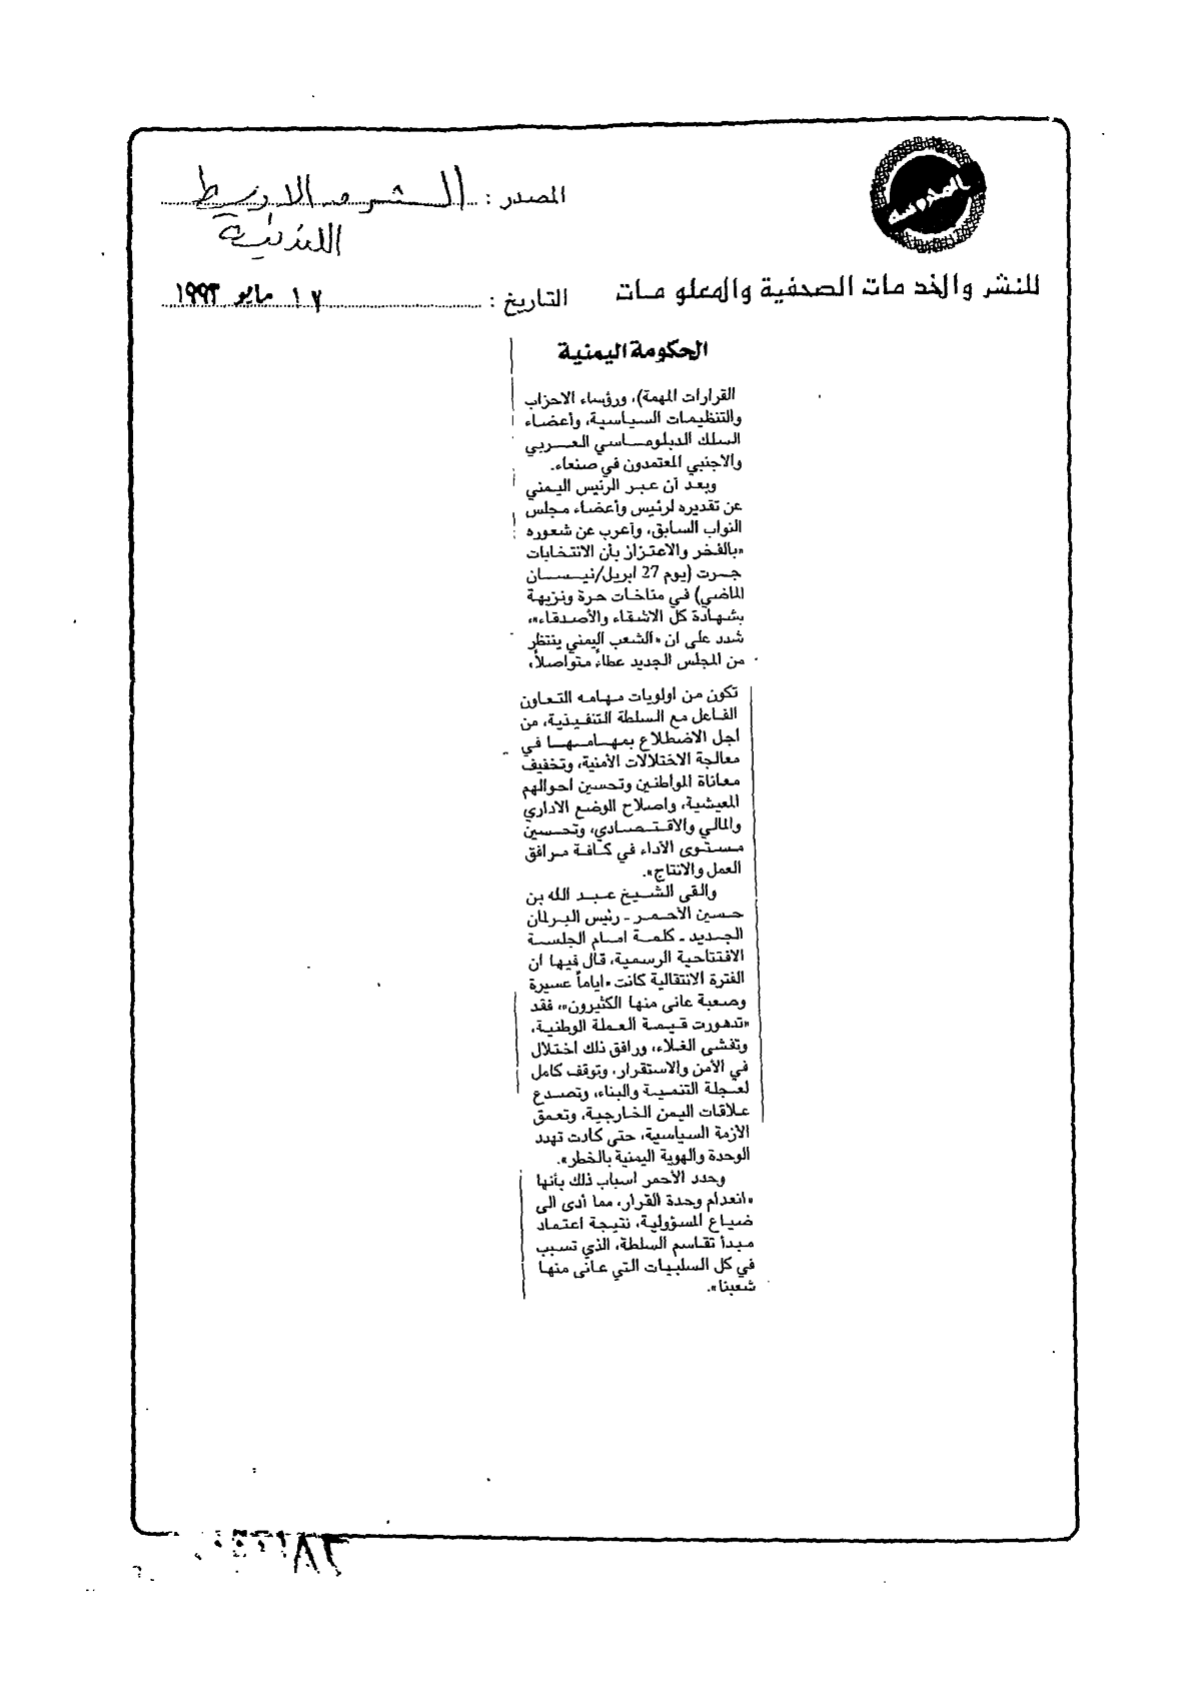 المدروسه
المصدر : الشرق الاوسط
اللندنية
للنشر والخدمات الصحفية والمعلومات
التاريخ : ١٧ مايو ١٩٩٣
الحكومة اليمنية
القرارات المهمة)، ورؤساء الاحزاب
والتنظيمات السياسية، وأعضاء
السلك الدبلوماسي العربي
والاجنبي المعتمدون في صنعاء.
وبعد أن عبر الرئيس اليمني
عن تقديره لرئيس وأعضاء مجلس
النواب السابق، وأعرب عن شعوره
«بالفخر والاعتزاز بأن الانتخابات
جرت (يوم 27 ابريل/نيسان
الماضي) في مناخات حرة ونزيهة
بشهادة كل الاشقاء والأصدقاء»،
شدد على ان «الشعب اليمني ينتظر
من المجلس الجديد عطاءً متواصلاً،
تكون من اولويات مهامه التعاون
الفاعل مع السلطة التنفيذية، من
اجل الاضطلاع بمهامها في
معالجة الاختلالات الأمنية، وتخفيف
معاناة المواطنين وتحسين احوالهم
المعيشية، واصلاح الوضع الاداري
والمالي والاقتصادي، وتحسين
مستوى الأداء في كافة مرافق
العمل والانتاج».
والقى الشيخ عبد الله بن
حسين الأحمر ـ رئيس البرلمان
الجديد ـ كلمة امام الجلسة
الافتتاحية الرسمية، قال فيها ان
الفترة الانتقالية كانت «اياماً عسيرة
وصعبة عانى منها الكثيرون»، فقد
«تدهورت قيمة العملة الوطنية،
وتفشى الغلاء، ورافق ذلك اختلال
في الأمن والاستقرار، وتوقف كامل
لعجلة التنمية والبناء، وتصدع
علاقات اليمن الخارجية، وتعمق
الأزمة السياسية، حتى كادت تهدد
الوحدة والهوية اليمنية بالخطر».
وحدد الأحمر اسباب ذلك بأنها
«انعدام وحدة القرار، مما أدى الى
ضياع المسؤولية، نتيجة اعتماد
مبدأ تقاسم السلطة، الذي تسبب
في كل السلبيات التي عانى منها
شعبنا».